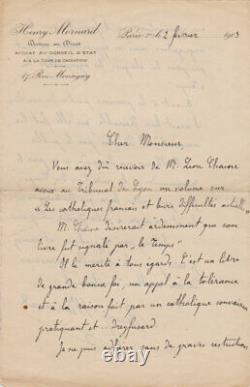 Henry Mornard
Docteur en Droit
AVOCAT AU CONSEIL D'ETAT
& A LA COUR DE CASSATION
17, Rue Monsigny
Paris, le 2 février 1903
Cher Monsieur
Vous avez dû recevoir de M. Léon Chaine
avoué au Tribunal de Lyon un volume sur
"Les Catholiques français et leurs difficultés actuelles"
M. Chaine desirerait ardemment que son
livre fut signalé par "le Temps"
Il le mérite à tous egards. C'est un livre
de grande bonne foi, un appel à la tolérance
et à la raison fait par un catholique convaincu,
pratiquant et.. dreyfusard.
Je ne puis adhérer sans de graves restrictions